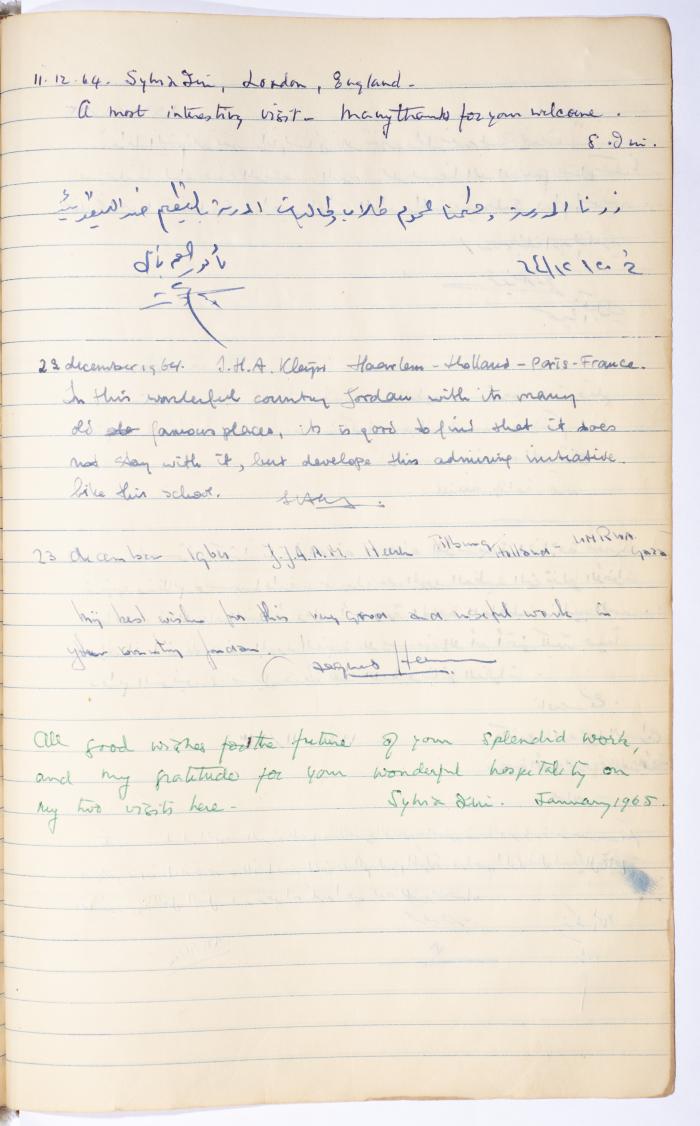 11.12.64. Sylvia, London, England -
A most interesting visit - Many thanks for your welcome.
S.
زرنا المدرسة وطعمنا عموم طلاب وطالبات المدرسة بلقيم ضد
مأمور
23 december 1964. J.H.A. Kleijn Haarlem - Holland - Paris - France.
In this wonderful country Jordan with its many
old famous places, it is good to find that it does
not stay with it, but develope this admiring initiative
like this school.
23 december 1964 J.J.A.M. Tilburg Holland - UNRWA Gaza
My best wishes for this very good and useful work in
your country Jordan.
Jacques
All good wishes for the future of your splendid work,
and my gratitude for your wonderful hospitality on
my two visits here - Sylvia January 1965.